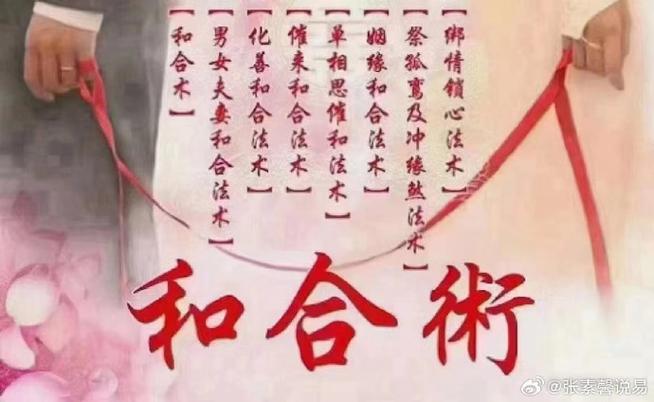 【绑情锁心法术】
【祭孤鸾及冲缘煞法术】
【姻缘和合法术】
【单相思催和法术】
【催来和合法术】
【化善和合法术】
【男女夫妻和合法术】
【和合术】
和合術
@张素馨说易